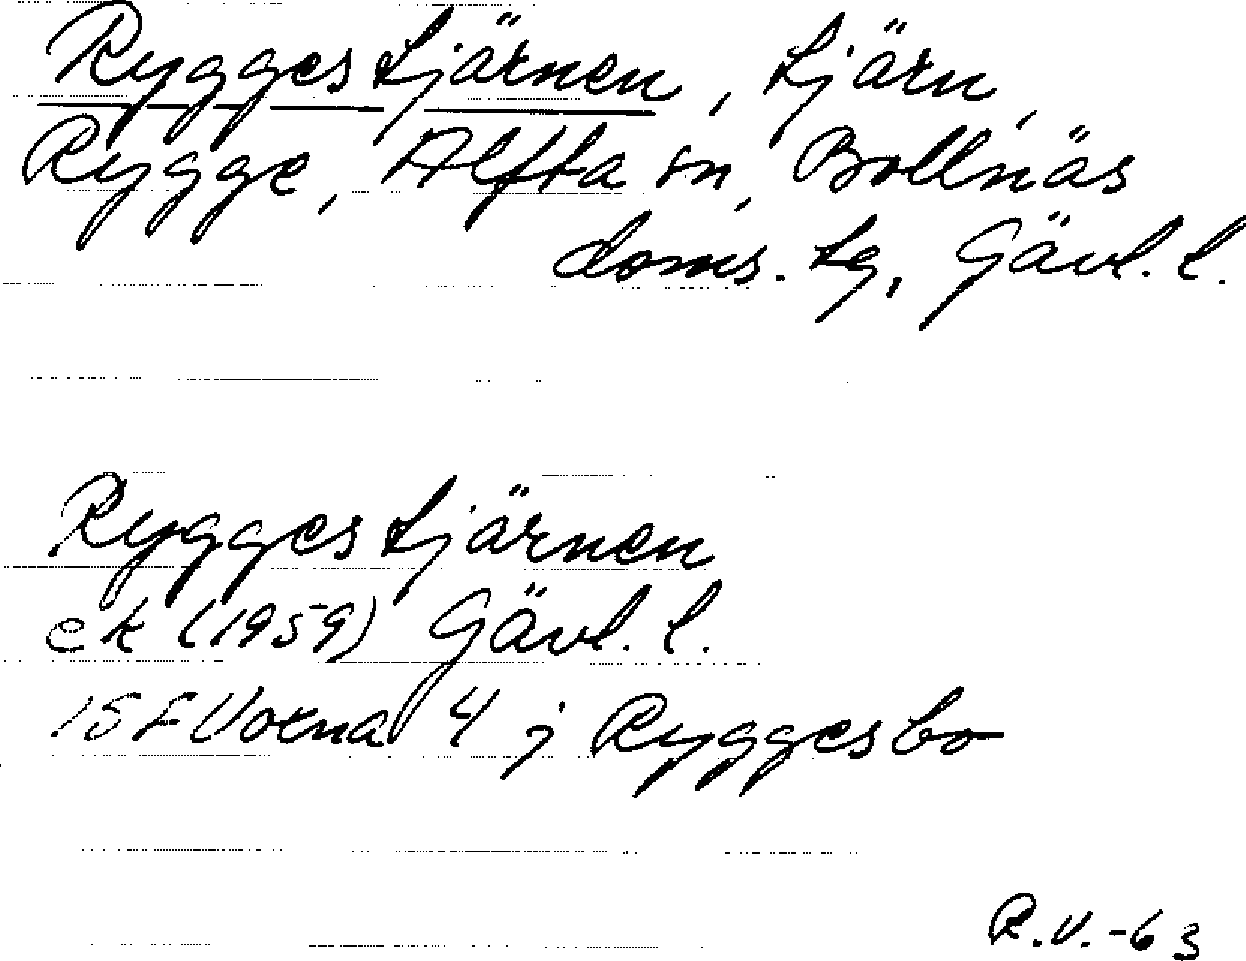 Ryggestjärnen, tjärn,
Rygge, Alfta sn, Bollnäs
doms. tg, Gävl. l.
Ryggestjärnen
ek (1959) Gävl. l.
15 F Voxna 4 j Ryggesbo
R.V.-63